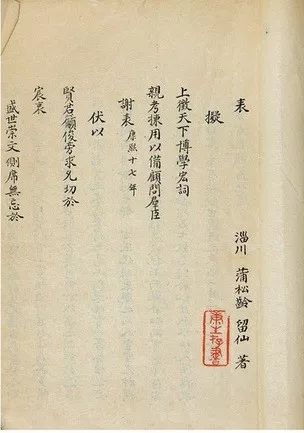 表
淄川 蒲松齡 留仙 著
擬
上徵天下博學宏詞
親考揀用以備顧問羣臣
謝表 康熙十七年
伏以
賢君籲俊旁求允切於
宸衷
盛世崇文側席無忘於